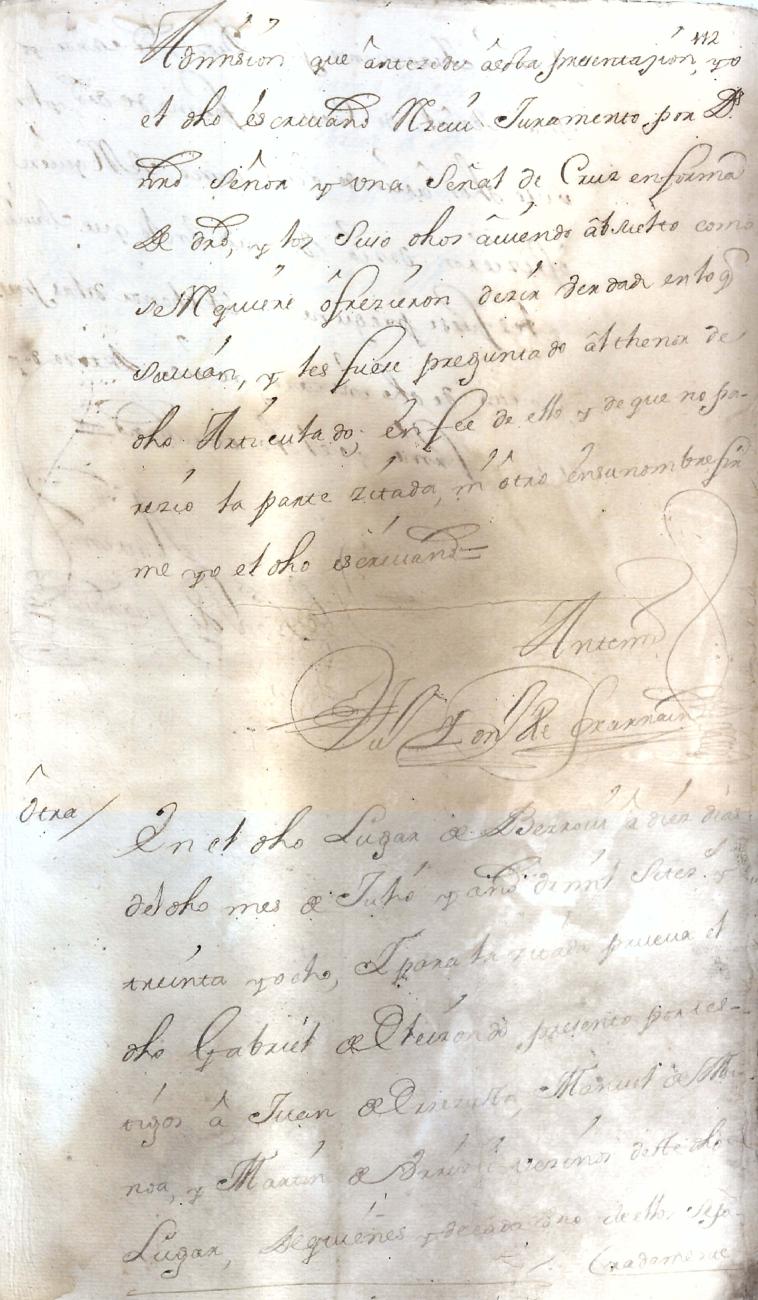 112
Admision que antezede â esta presentazion, yo
el dho escriuano Reciui Juramento por Ds.
nro Señor y vna Señal de Cruz en forma
de dro, y los Suso dhos âuiendo âbsuelto como
se Requiere ôfrezieron dezir berdad en lo q̃
Sauian, y les fuere preguntado âl thenor de
dho Articulado; en fee de ello y de que no pa-
rezio la parte zitada, ni ôtro en su nombre fir
me yo el dho escriuano =
Antemi
de
Ôtra /
En el dho Lugar de Berroui â diez dias
del dho mes de Julio y año de mil Setez.s y
treinta y ocho, Y para la zitada prueua el
dho Gabriel de presento por tes-
tigos â Juan de Manuel de
y Martin de vezinos de este dho
Lugar, de quienes y de cada vno de ellos sepa-
radamente